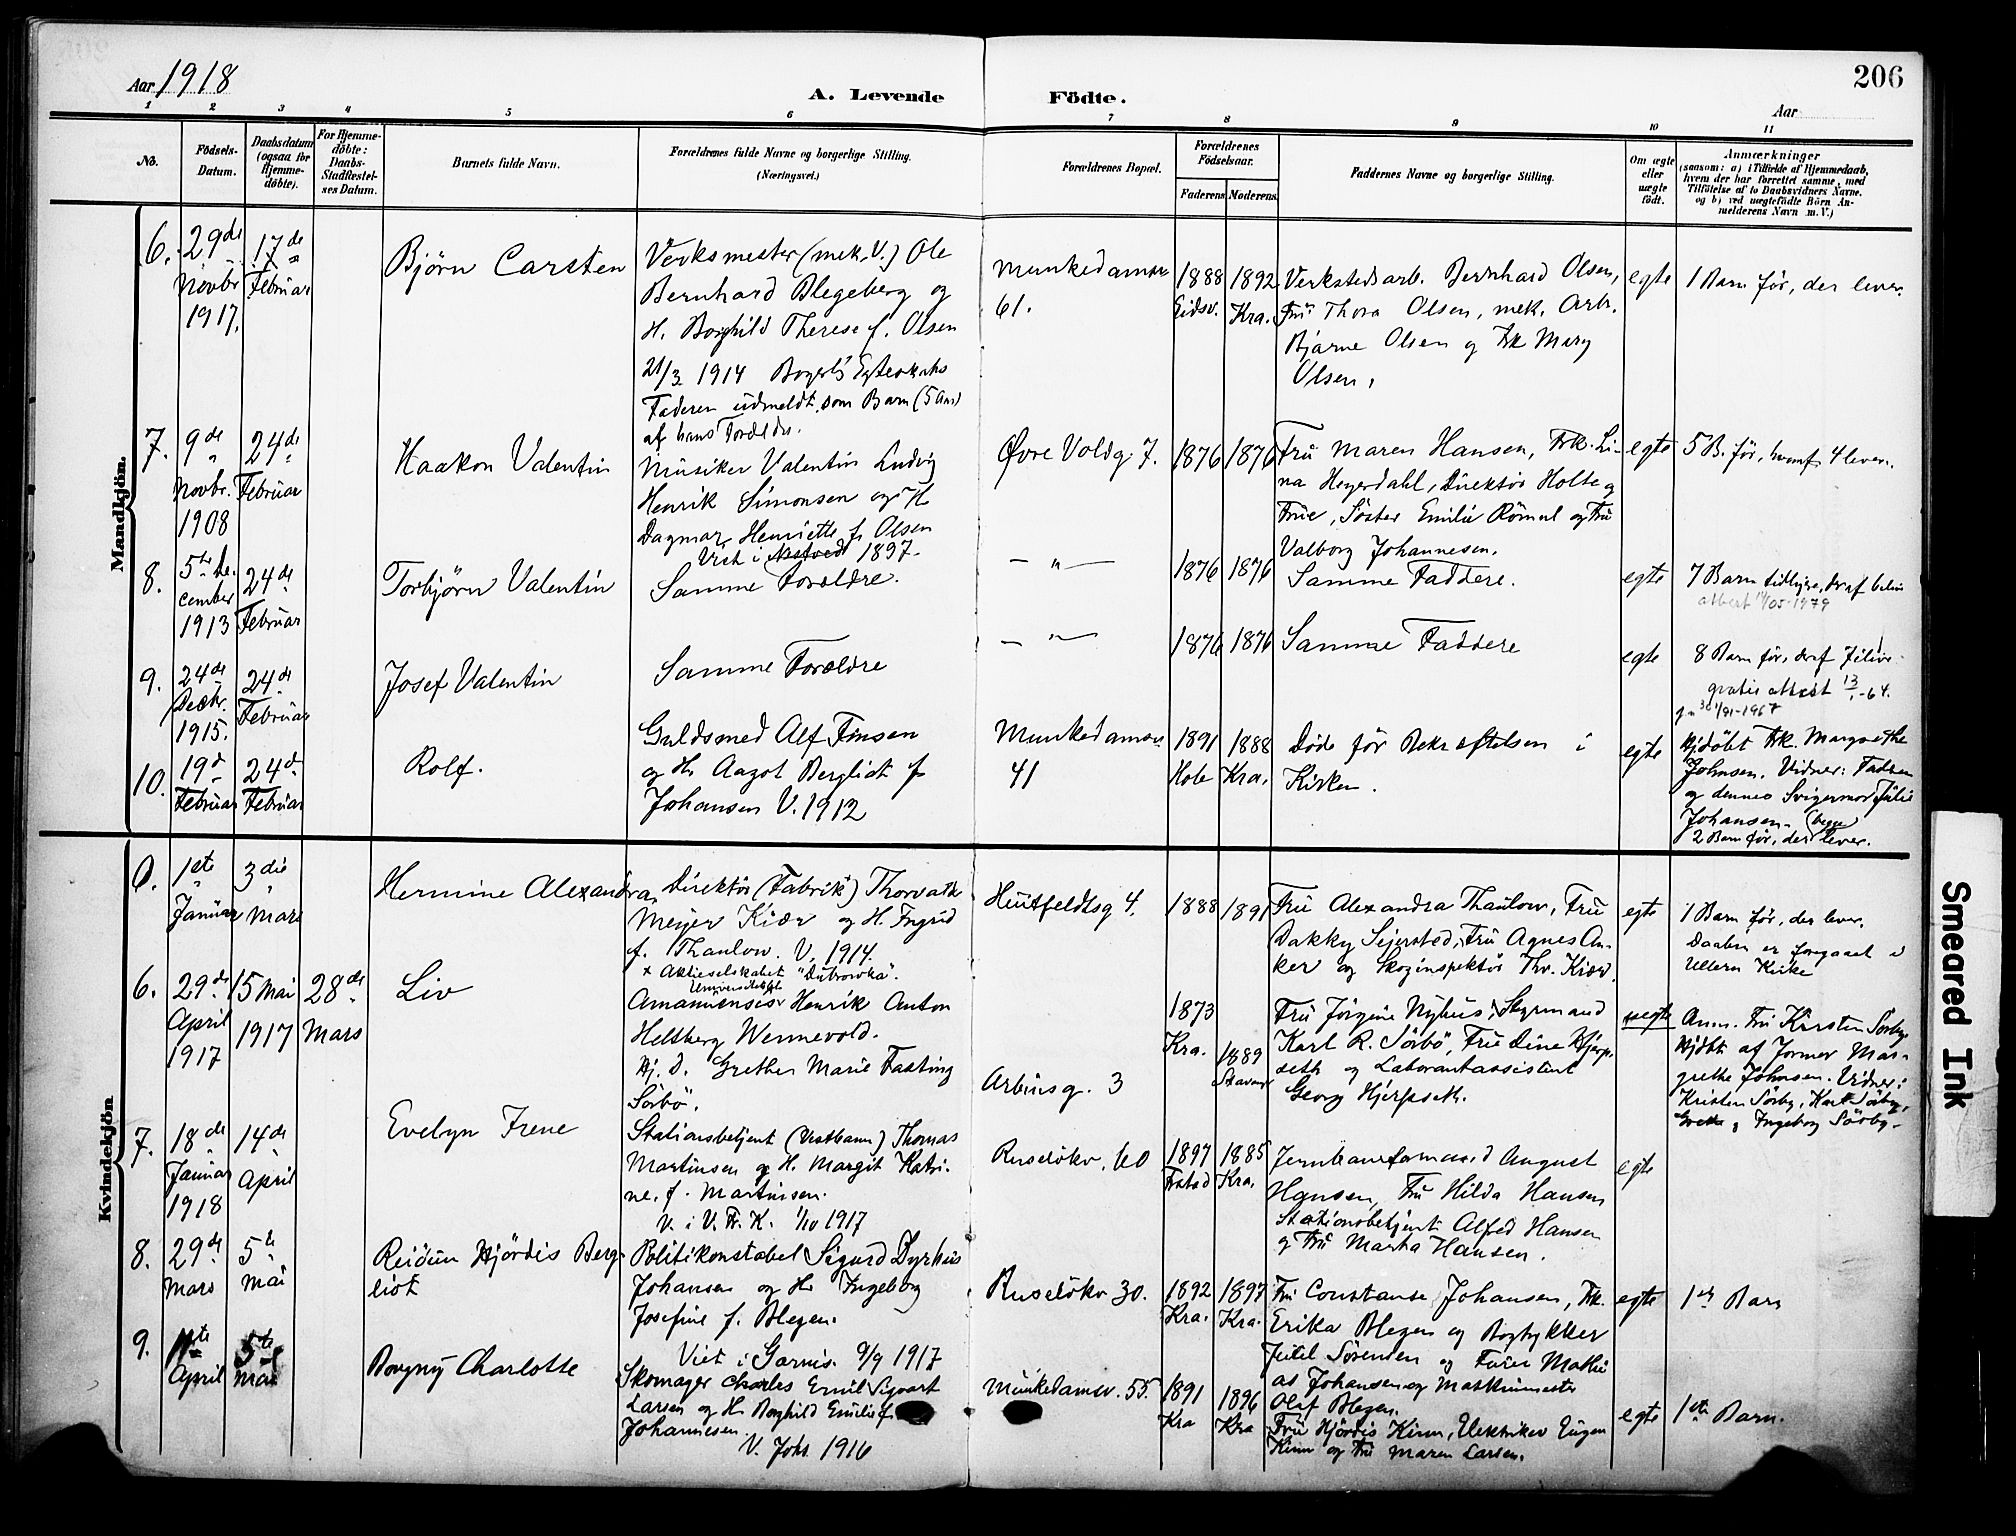 Aar 1918
A. Levende Födte.
206
Aar
1 2 3 4 5 6 7 8 9 10 11
No.
Födsels-Datum.
Daabsdatum (ogsaa for Hjemme-döbte).
For Hjemme-döbte: Daabs-Stadfæstel-ses Datum.
Barnets fulde Navn.
Forældrenes fulde Navne og borgerlige Stilling. (Næringsvei.)
Forældrenes Bopæl.
Forældrenes Födselsaar.
Faderens Moderens
Faddernes Navne og borgerlige Stilling.
Om ægte eller uægte födt.
Anmærkninger
(saasom: a) i Tilfælde af Hjemmedaab, hvem der har forrettet samme, med Tilföielse af to Daabsvidners Navne. og b) ved uægtefödte Börn An-melderens Navn m.V.)
Mandkjön.
6. 29de Novbr 1917.
17de Februar
Bjørn Carsten
Verksmester (mek. V.) Ole
Bernhard Blegeberg og
H. Borghild Therese f. Olsen
21/3 1914 Borgerl. Egteskabs
Faderen udmeldt som Barn (5 Aar)
af hans Forældre.
Munkedamsv 61.
1888 Eidsv.
1892 Kra.
Verkstedsarb. Bernhard Olsen,
Fru Thora Olsen, mek. Arb.
Bjarne Olsen og Frk Mary
Olsen,
egte
1 Barn før, der lever.
7. 9de Novbr. 1908
24de Februar
Haakon Valentin
Musiker Valentin Ludvig
Henrik Simonsen og H
Dagmar Henriette f. Olsen
Viet i Næstved 1897.
Øvre Voldg. 7.
1876 1876
Fru Maren Hansen, Frk. Li-
na Heyerdahl, Direktør Holte og
Frue, Søster Emilie Römul og Fru
Valborg Johannesen.
egte
5 B. før, hvoraf 4 lever.
8. 5te De-cember 1913
24de Februar
Torbjørn Valentin
Samme Forældre.
— " —
1876 1876
Samme Faddere.
egte
7 Barn tidligere, draf 6 leve
attest 1979
9. 24de Decbr. 1915.
24de Februar
Josef Valentin
Samme Forældre
— " —
1876 1876
Samme Faddere
egte
8 Barn før, draf 7 leve
gratis attest 13/1-64.
1967
10. 19d Februar
24d Februar
Rolf.
Guldsmed Alf Finsen
og H. Aagot Bergliot f
Johansen V. 1912
Munkedamsv. 41
1891 Hole
1888 Kra.
Døde før Bekræftelsen i
Kirken.
egte
Hjdöbt Frk. Margrethe
Johnsen. Vidner: Faderen
og dennes Svigermor Julie
Johansen. (begge)
2 Barn før, der lever.
Kvindekjön
0. 1ste Januar
3die Mars
Hermine Alexandra
Direktør (Fabrik) Thorvald
Meyer Kiær og H. Ingrid
f. Thaulow. V. 1914.
x Aktieselskabet "Dubrowka".
Huitfeldtsg 4.
1888 1891
Fru Alexandra Thaulow, Fru
Dakky Sejersted, Fru Agnes An-
ker og Skoginspektør Thv. Kiær.
egte
1 Barn før, der lever.
Daaben er foregaaet i
Ullern Kirke
6. 29de April 1917
15 Mai 1917
28de Mars
Liv
Amanuensis Henrik Anton
Helsberg Wennevold.
Hj. D. Grethe Marie Fasting
Sörbö.
Arbinsg. 3
1873 Kra.
1889 Stavanger
Fru Jörgine Nyhus, Styrmand
Karl R. Sörbö, Frue Dine Hjerp-
seth og Laborantassistent
Georg Hjerpseth.
uegte
Anm. Fru Kirsten Sørby.
Hjdbt af Jormor Mar-
grethe Johnsen. Vidner:
Kristen Sørby, Karl Sørby,
Grethe og Ingeborg Sørby.
7. 18de Januar 1918
14de April
Evelyn Irene
Stationsbetjent (Vestbanen) Thomas
Martinsen og H. Margit Katri-
ne f. Martinsen.
V. i V. Fr. K. 1/10 1917
Ruselökv. 60
1897 Frstad
1885 Kra.
Jernbaneformand August
Hansen, Fru Hilda Hansen
Stationsbetjent Alfred Hansen
og Fru Martha Hansen.
egte
8. 29de Mars
5te Mai
Reidun Hjördis Berg-
liot
Politikonstabel Sigurd Dyrhus
Johansen og H. Ingeborg
Josefine f. Blegen.
Viet i Garnis. 9/9 1917
Ruselökv 30.
1892 Kra.
1897 Kra.
Fru Constanse Johansen, Frk.
Erika Blegen og Bogtykker
Sörensen og Furer Mathi
as Johansen og Maskinmester
Olaf Blegen.
egte
1ste Barn
9. 11te April
5te Mai
Borgny Charlotte
Skomager Charles Emil Sigvart
Larsen og H. Borghild Emilie f.
Johannesen.
V. Johs 1916
Munkedamsv. 55.
1891 Kra
1896 Kra
Fru Hjördis Kinn, Elektriker Eugen
Kinn og Fru Maren Larsen.
egte
1ste Barn.
Smeared Ink